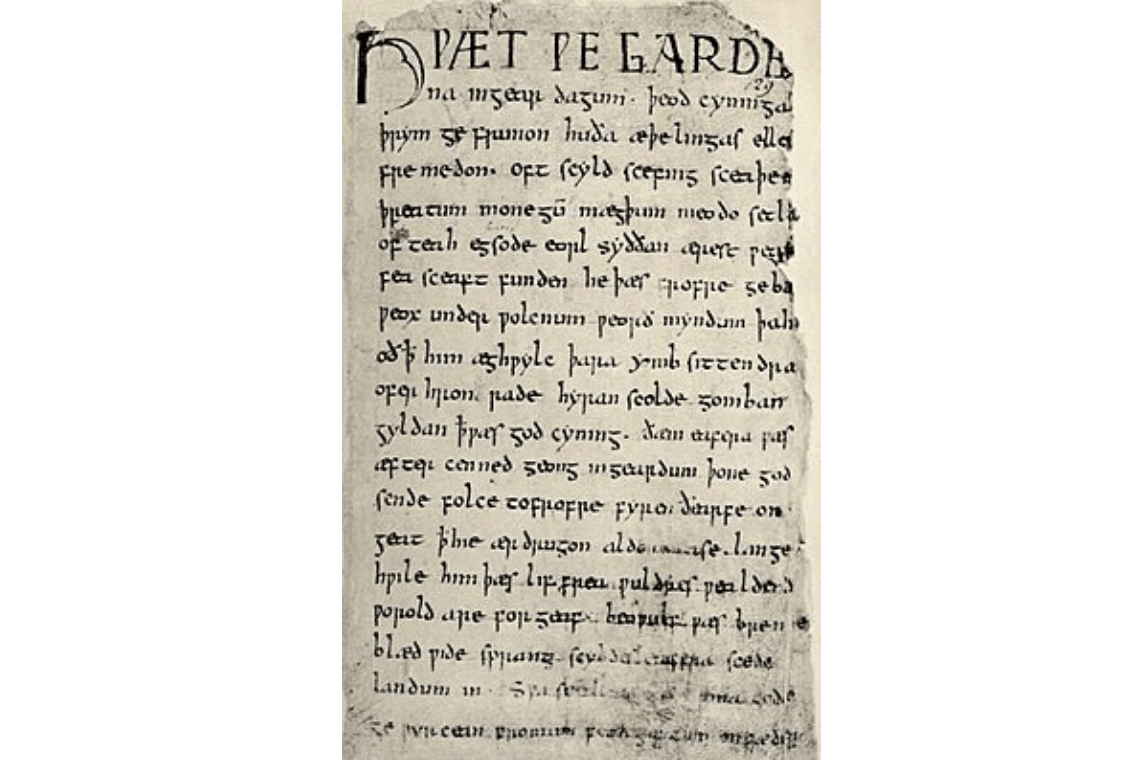 HǷÆT ǷE GARDE
na ingear dagum. þeod cyninga
þrym ge frunon huða æþelingas elle
fremedon. oft scyld scefing sceaþen
þreatum monegū mægþum meodo setla
of teah egsode eorl syððan ærest ƿear
fea sceaft funden heþæs frofre geba
ƿeox under ƿolcnum ƿeorð myndum þah
oðꝥ him æghƿylc þara ymb sittendra
ofer hron rade hyran scolde gomban
gyldan ꝥƿæs god cyning. ðam eafera ƿæs
æfter cenned geong ingeardum þone god
sende folce tofrofre fyren ðearfe on
geat ꝥhie ær drugon aldor se. lange
hƿile himþæs lif frea ƿuldres ƿealdend
ƿorold are forgeaf. beoƿulf ƿæs breme
blæd ƿide sprang scyldes eafera scede
landum in. Sƿa gode
ge ƿyrcean fromum feoh giftum